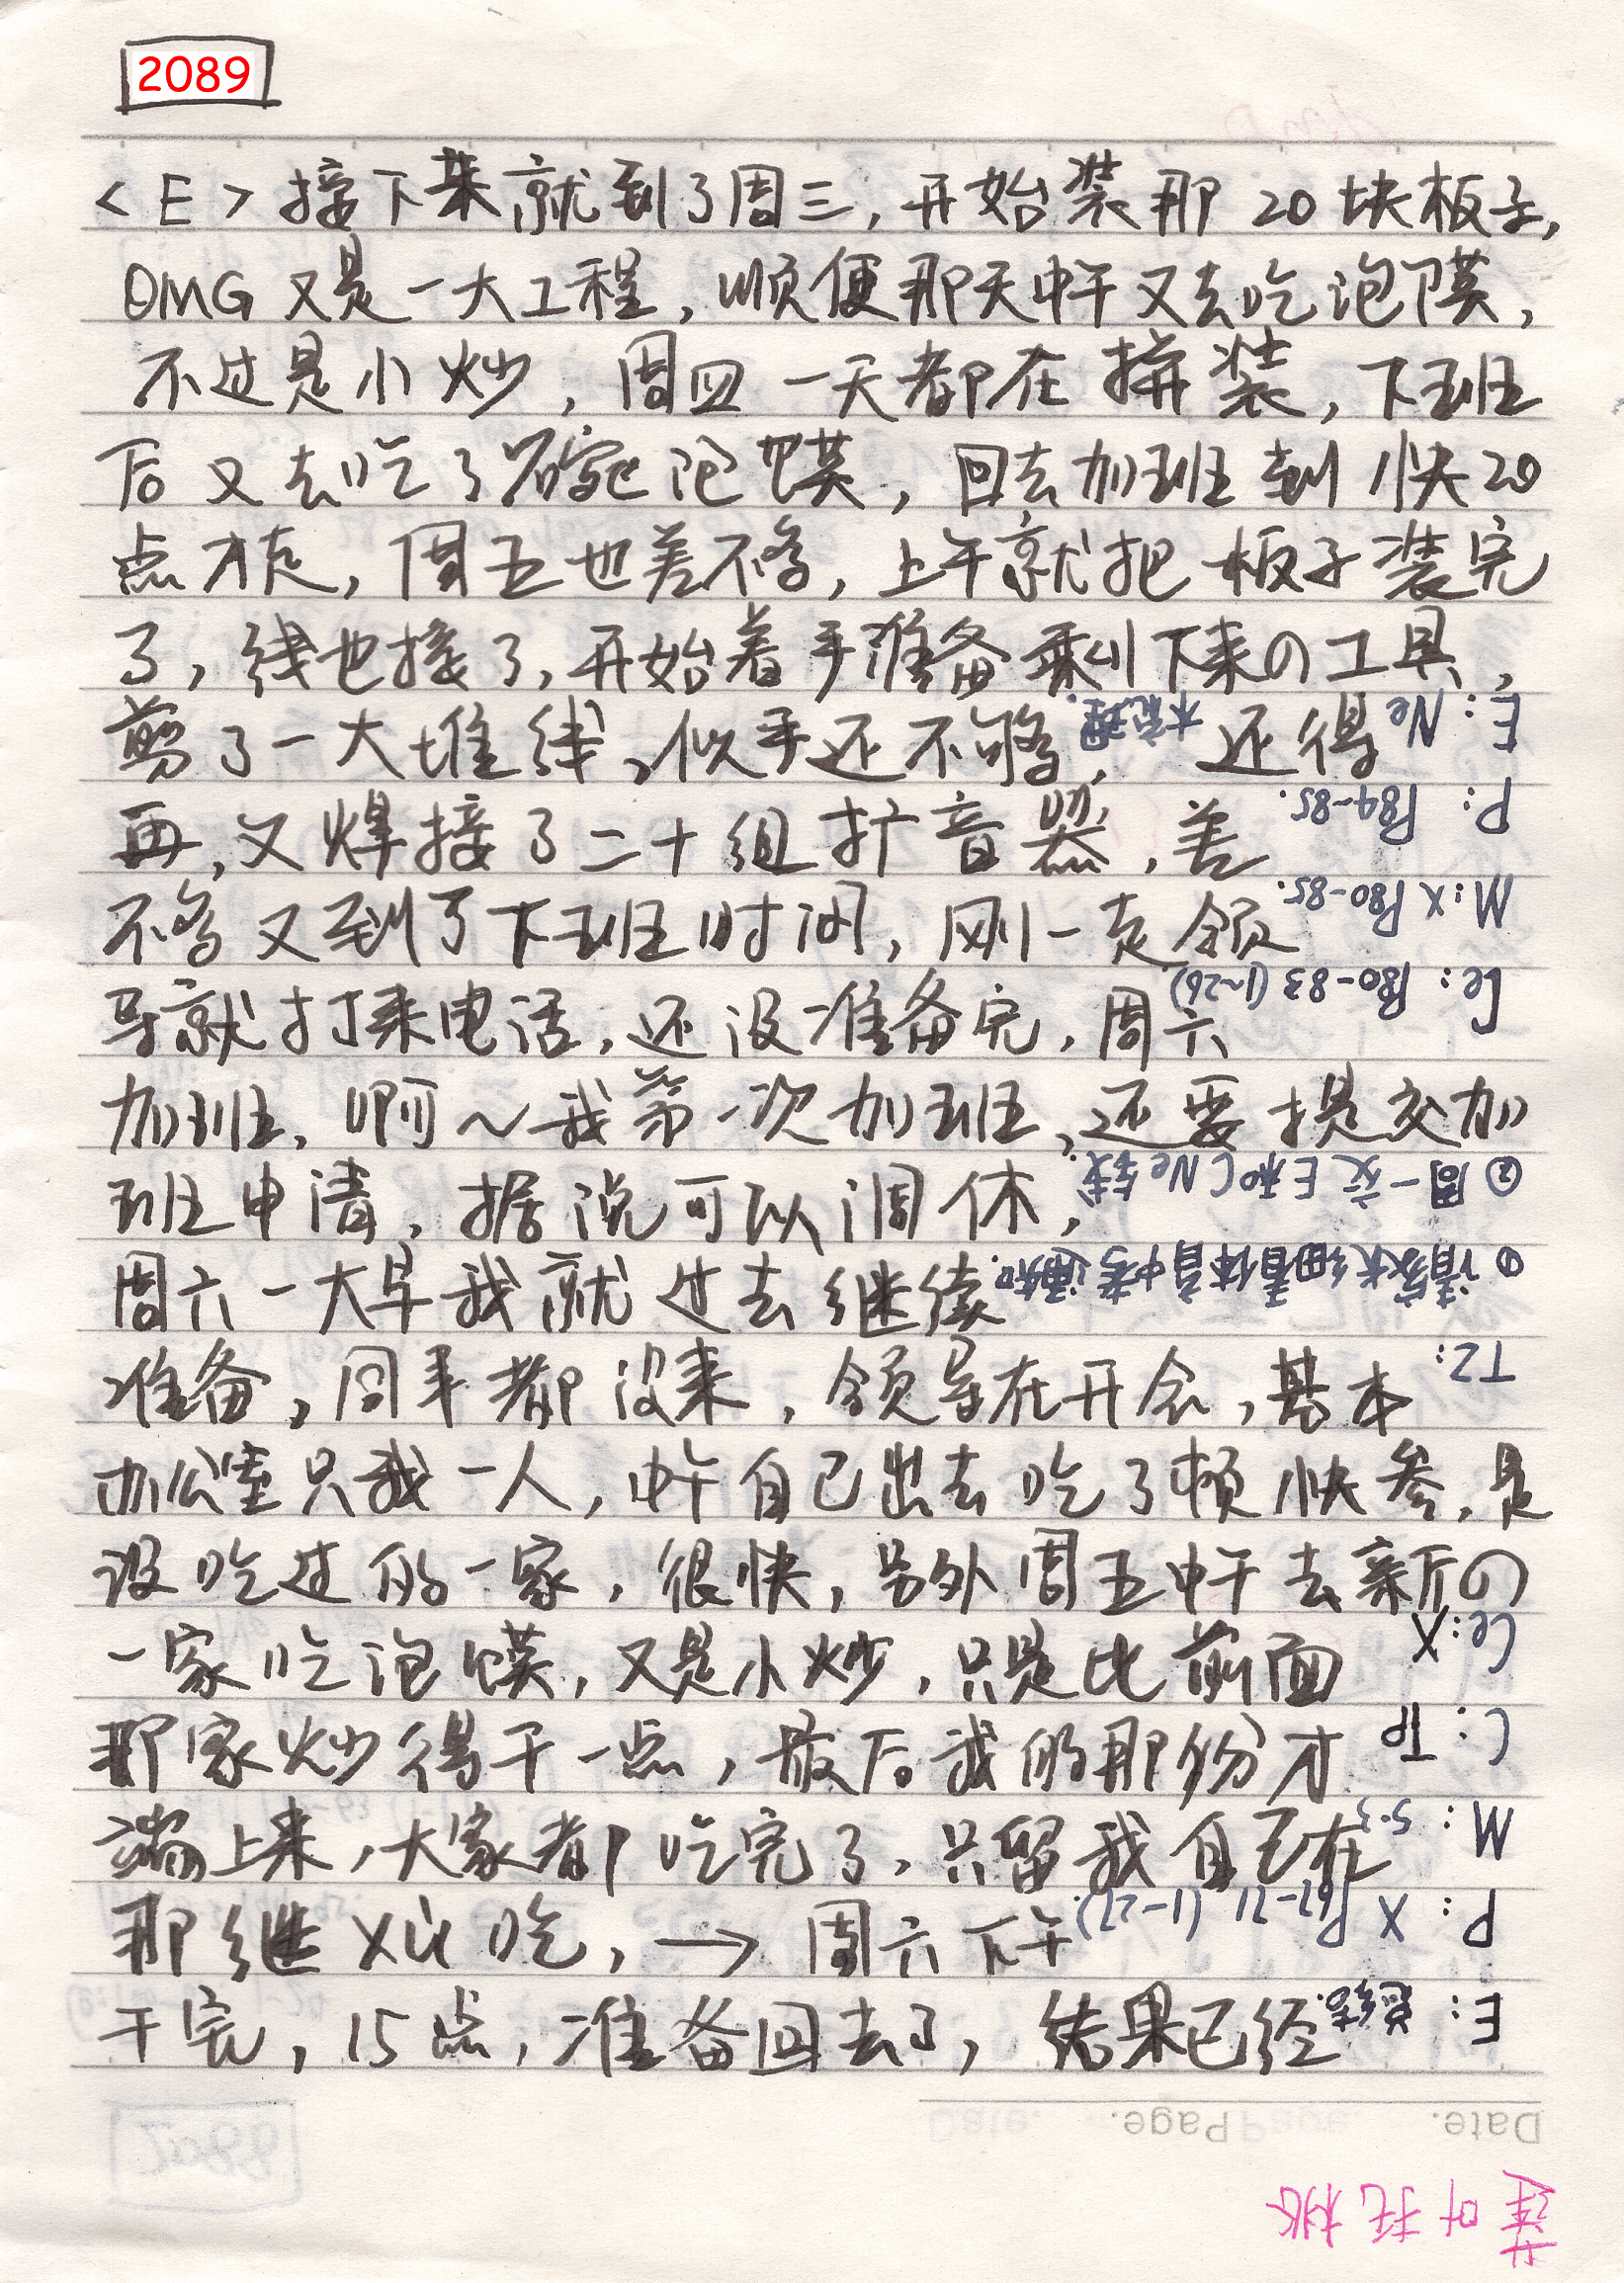 2089
<E>接下来就到了周三,开始装那20块板子,
OMG又是一大工程,顺便那天中午又去吃泡馍,
不过是小炒,周四一天都在拼装,下班
后又去吃了碗泡馍,回去加班到快20
点才走,周五也差不多,上午就把板子装完
了,线也接了,开始着手准备剩下来の工具,
剪了一大堆线,似乎还不够,还得
再,又焊接了二十组扩音器,差
不多又到了下班时间,刚一走领
导就打来电话,还没准备完,周六
加班,啊~我第一次加班,还要提交加
班申请,据说可以调休,
周六一大早我就过去继续
准备,同事都没来,领导在开会,基本
办公室只我一人,中午自己出去吃了顿快参,是
没吃过的一家,很快,另外周五中午去新の
一家吃泡馍,又是小炒,只是比前面
那家炒得干一点,最后我的那份才
端上来,大家都吃完了,只留我自己在
那继xù吃,→周六下午
干完,15点,准备回去了,结果已经
Date. Page.
E:总结.
P: X P67-71 (1-27).
M: 5.3
C: TP
Ce: X
T2:
①请家长细看体育中考通知.
②周一交E和C Ne钱.
Ce: P80-83 (1~26)
M: X P80-85.
P: P84-85.
E: Ne 木乾理.